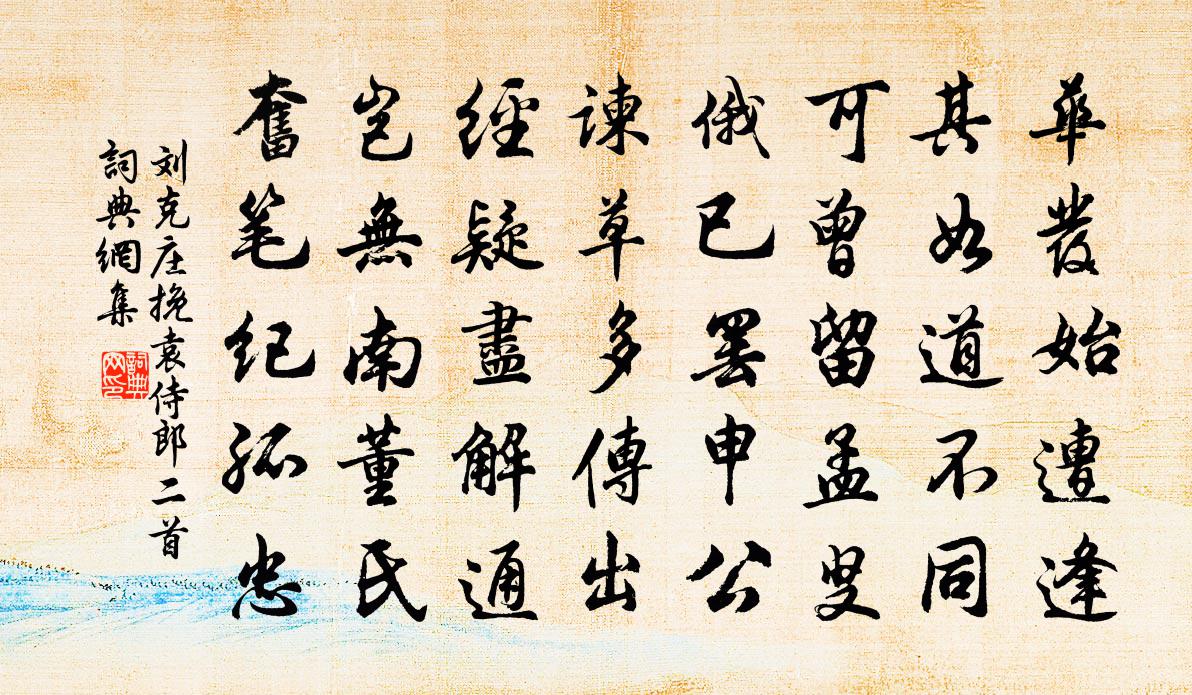 華發始遭逢
其如道不同
可曾留孟叟
俄已罢申公
諫草多傳出
經疑盡解通
岂無南董氏
奮笔纪孤忠
刘克庄挽袁侍郎二首
詞典網集
詞典网印